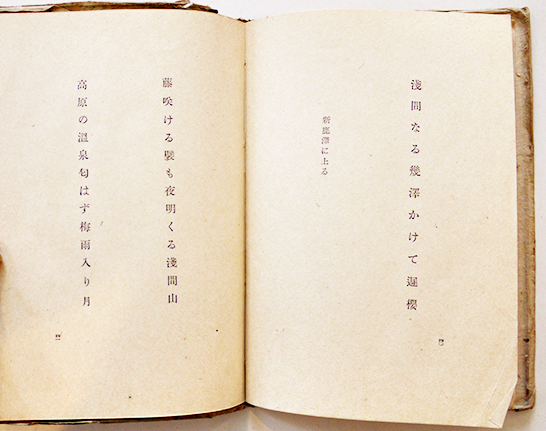 淺間なる幾澤かけて遲櫻
新鹿澤に上る
藤咲ける驛も夜明くる淺間山
高原の溫泉匂はず梅雨入り月